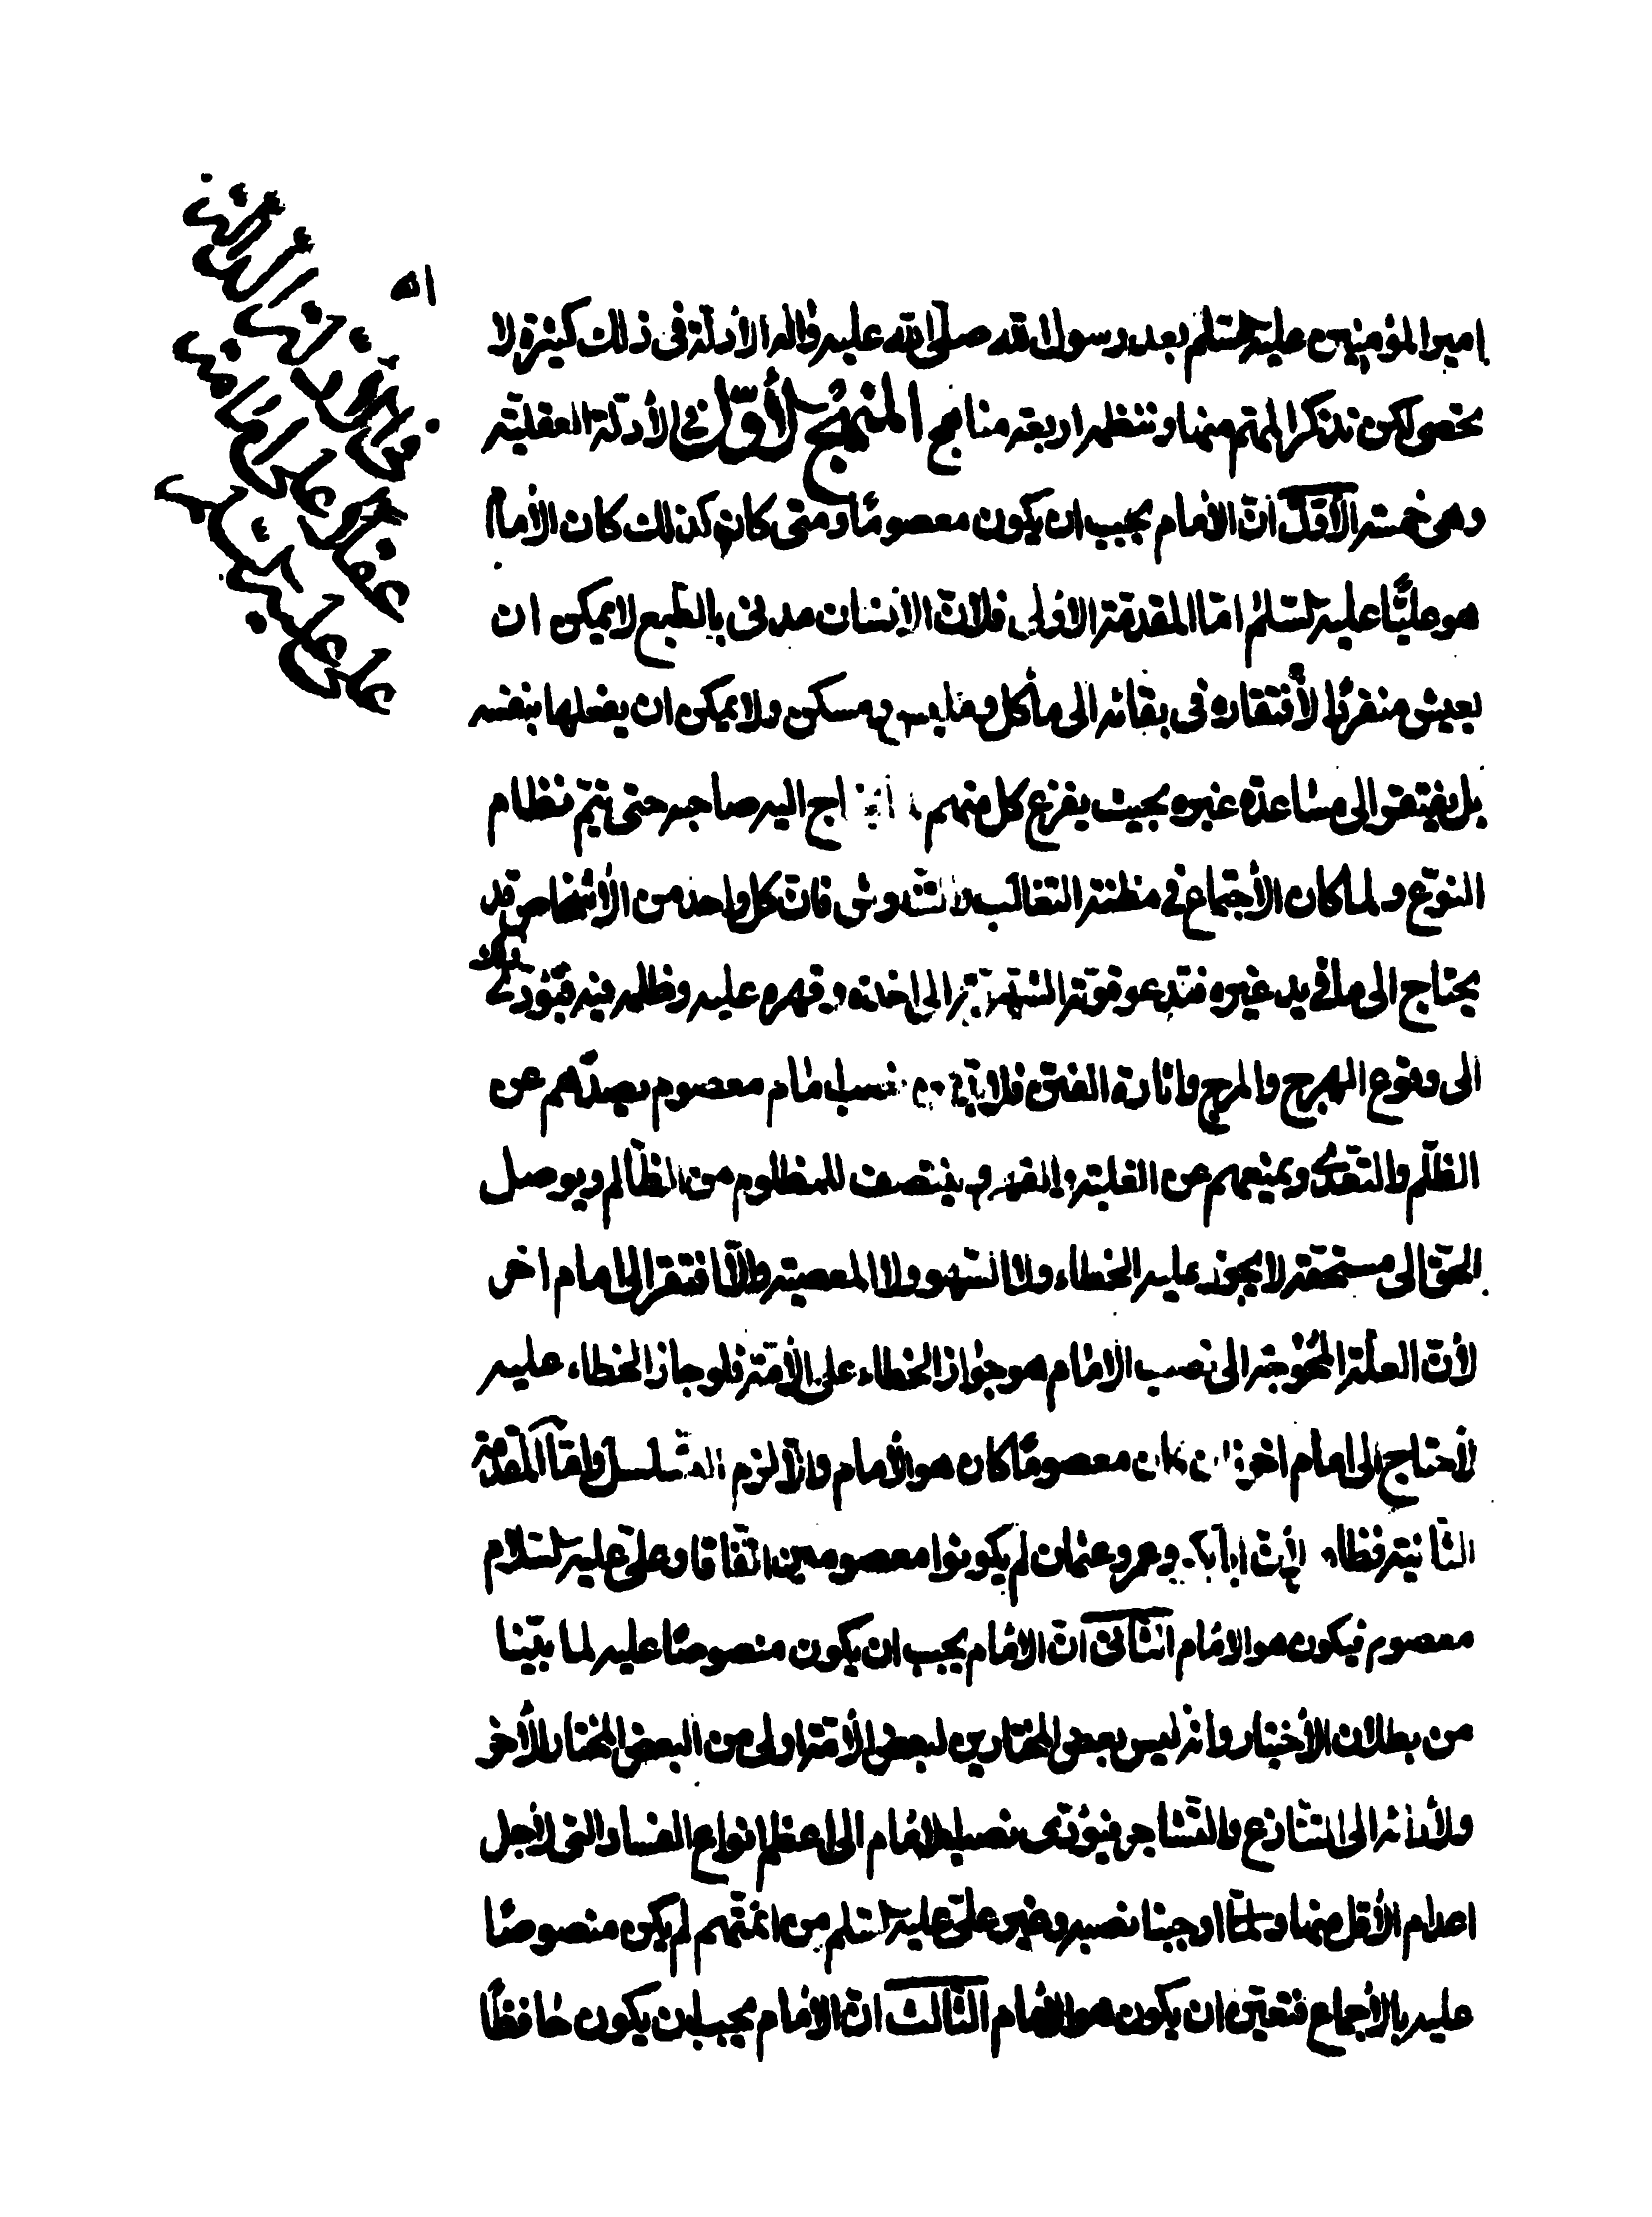 امير المؤمنين عليه السلم بعد رسول الله صلى الله عليه واله الادلة فى ذلك كثيرة لا
تحصى لكن نذكر المهم منها وننظم اربعة مناهج المنهج الأوّل في الأدلّة العقليّة
وهى خمسة الأوّل انّ الامام يجب ان يكون معصومًا ومتى كان كذلك كان الامام
هو عليًّا عليه السّلم امّا المقدمة الاولى فلانّ الانسان مدنى بالطبع لا يمكن ان
يعيش منفردًا لأفتقاره فى بقائه الى مأكل وملبس ومسكن ولا يمكن ان يفعلها بنفسه
بل يفتقر الى مساعدة غيره بحيث يفزع كل منهم اج اليه صاحبه حتى يتمّ نظام
النوّع ولما كان الأجتماع في مظنة التغالب والتشدوش فانّ كل واحد من الأشخاص قد
يحتاج الى ما في يد غيره فتدعو قوته الشهوية الى اخذه وقهره عليه وظلمه فيه فيؤدّي ذلك
الى وقوع الهرج والمرج واثارة الفتن فلا بدّ من نصب امام معصوم يصدّهم عن
الظلم والتعدّى ويمنعهم عن الغلبة والقهر وينتصف للمظلوم من الظالم ويوصل
الحق الى مستحقه لا يجوز عليه الخطاء ولا السّهو ولا المعصية والّا افتقر الى امام اخر
لأنّ العلّة المحوجة الى نصب الامام هو جواز الخطاء على الأمّة فلو جاز الخطاء عليه
لأحتاج الى امام اخر فان كان معصومًا كان هو الأمام والّا لزم التسلسل وامّا المقدّمة
الثّانية فظاهر لأنّ ابا بكر وعمر وعثمان لم يكونوا معصومين اتّفاقا وعلىّ عليه السّلام
معصوم فيكون هو الامام الثّانى انّ الامام يجب ان يكون منصوصًا عليه لما بيّنا
من بطلان الأختيار وانه ليس بعض المختارين لبعض الأمّة اولى من البعض المختار للأخر
ولأدائه الى التنازع والتّشاجر فيؤدّى نصب الامام الى اعظم انواع الفساد التى لأجل
اعدام الأقل منها اوجبنا نصبه وغير علىّ عليه السّلم من ائمّتهم لم يكن منصوصًا
عليه بالأجماع فتعيّن ان يكون هو الامام الثّالث انّ الامام يجب ان يكون حافظًا